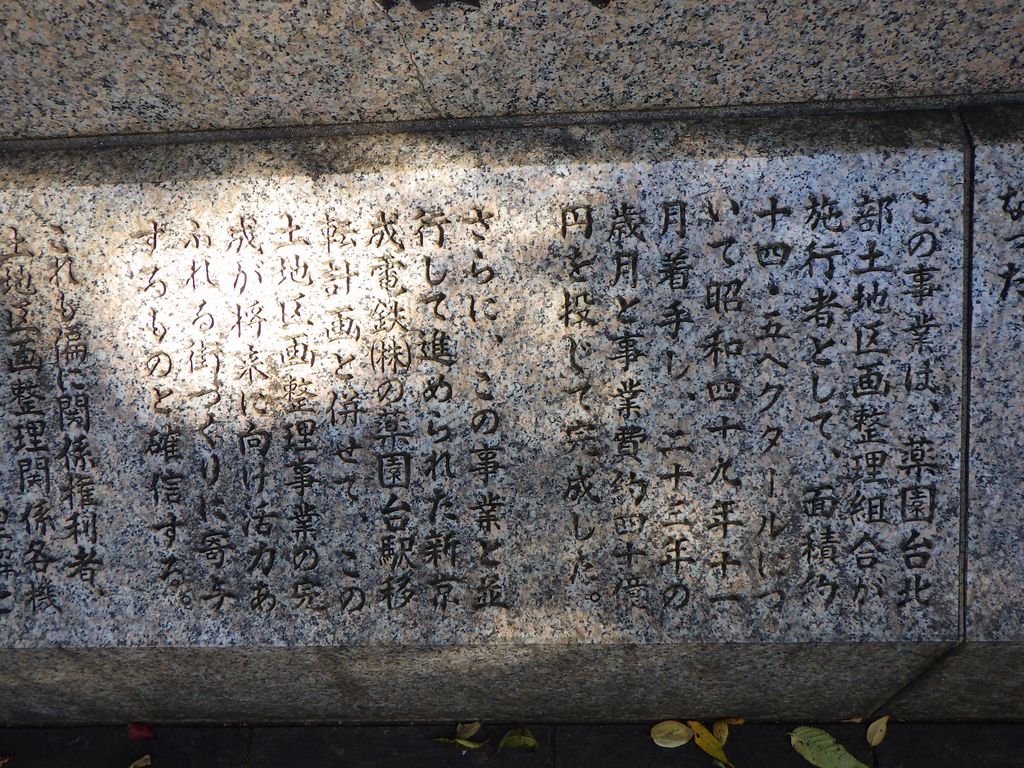 なった
この事業は、薬園台北
部土地区画整理組合が
施行者として、面積約
十四・五ヘクタールにつ
いて昭和四十九年十一
月着手し、二十三年の
歳月と事業費約四十億
円を投じて完成した。
さらに、この事業と並
行して進められた新京
成電鉄㈱の薬園台駅移
転計画と併せて、この
土地区画整理事業の完
成が将来に向け活力あ
ふれる街づくりに寄与
するものと確信する。
これも偏に関係権利者、
土地区画整理関係各機